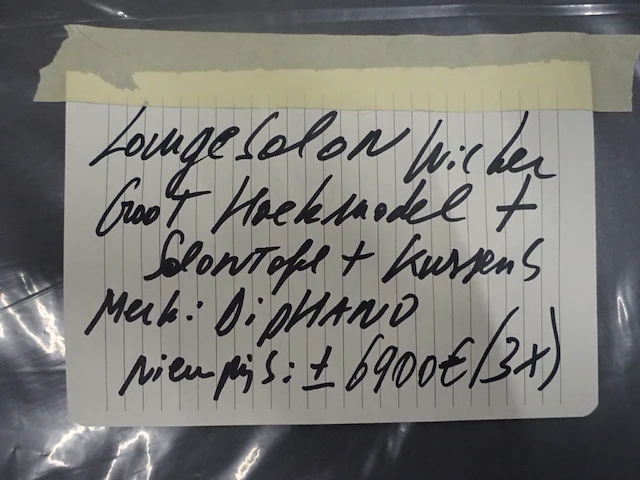 Lounge Salon Wicker
Groot Hoekmodel +
Salontafel + Kussens
Merk: DipHANO
Nieuwprijs: ± 6900€ (3x)